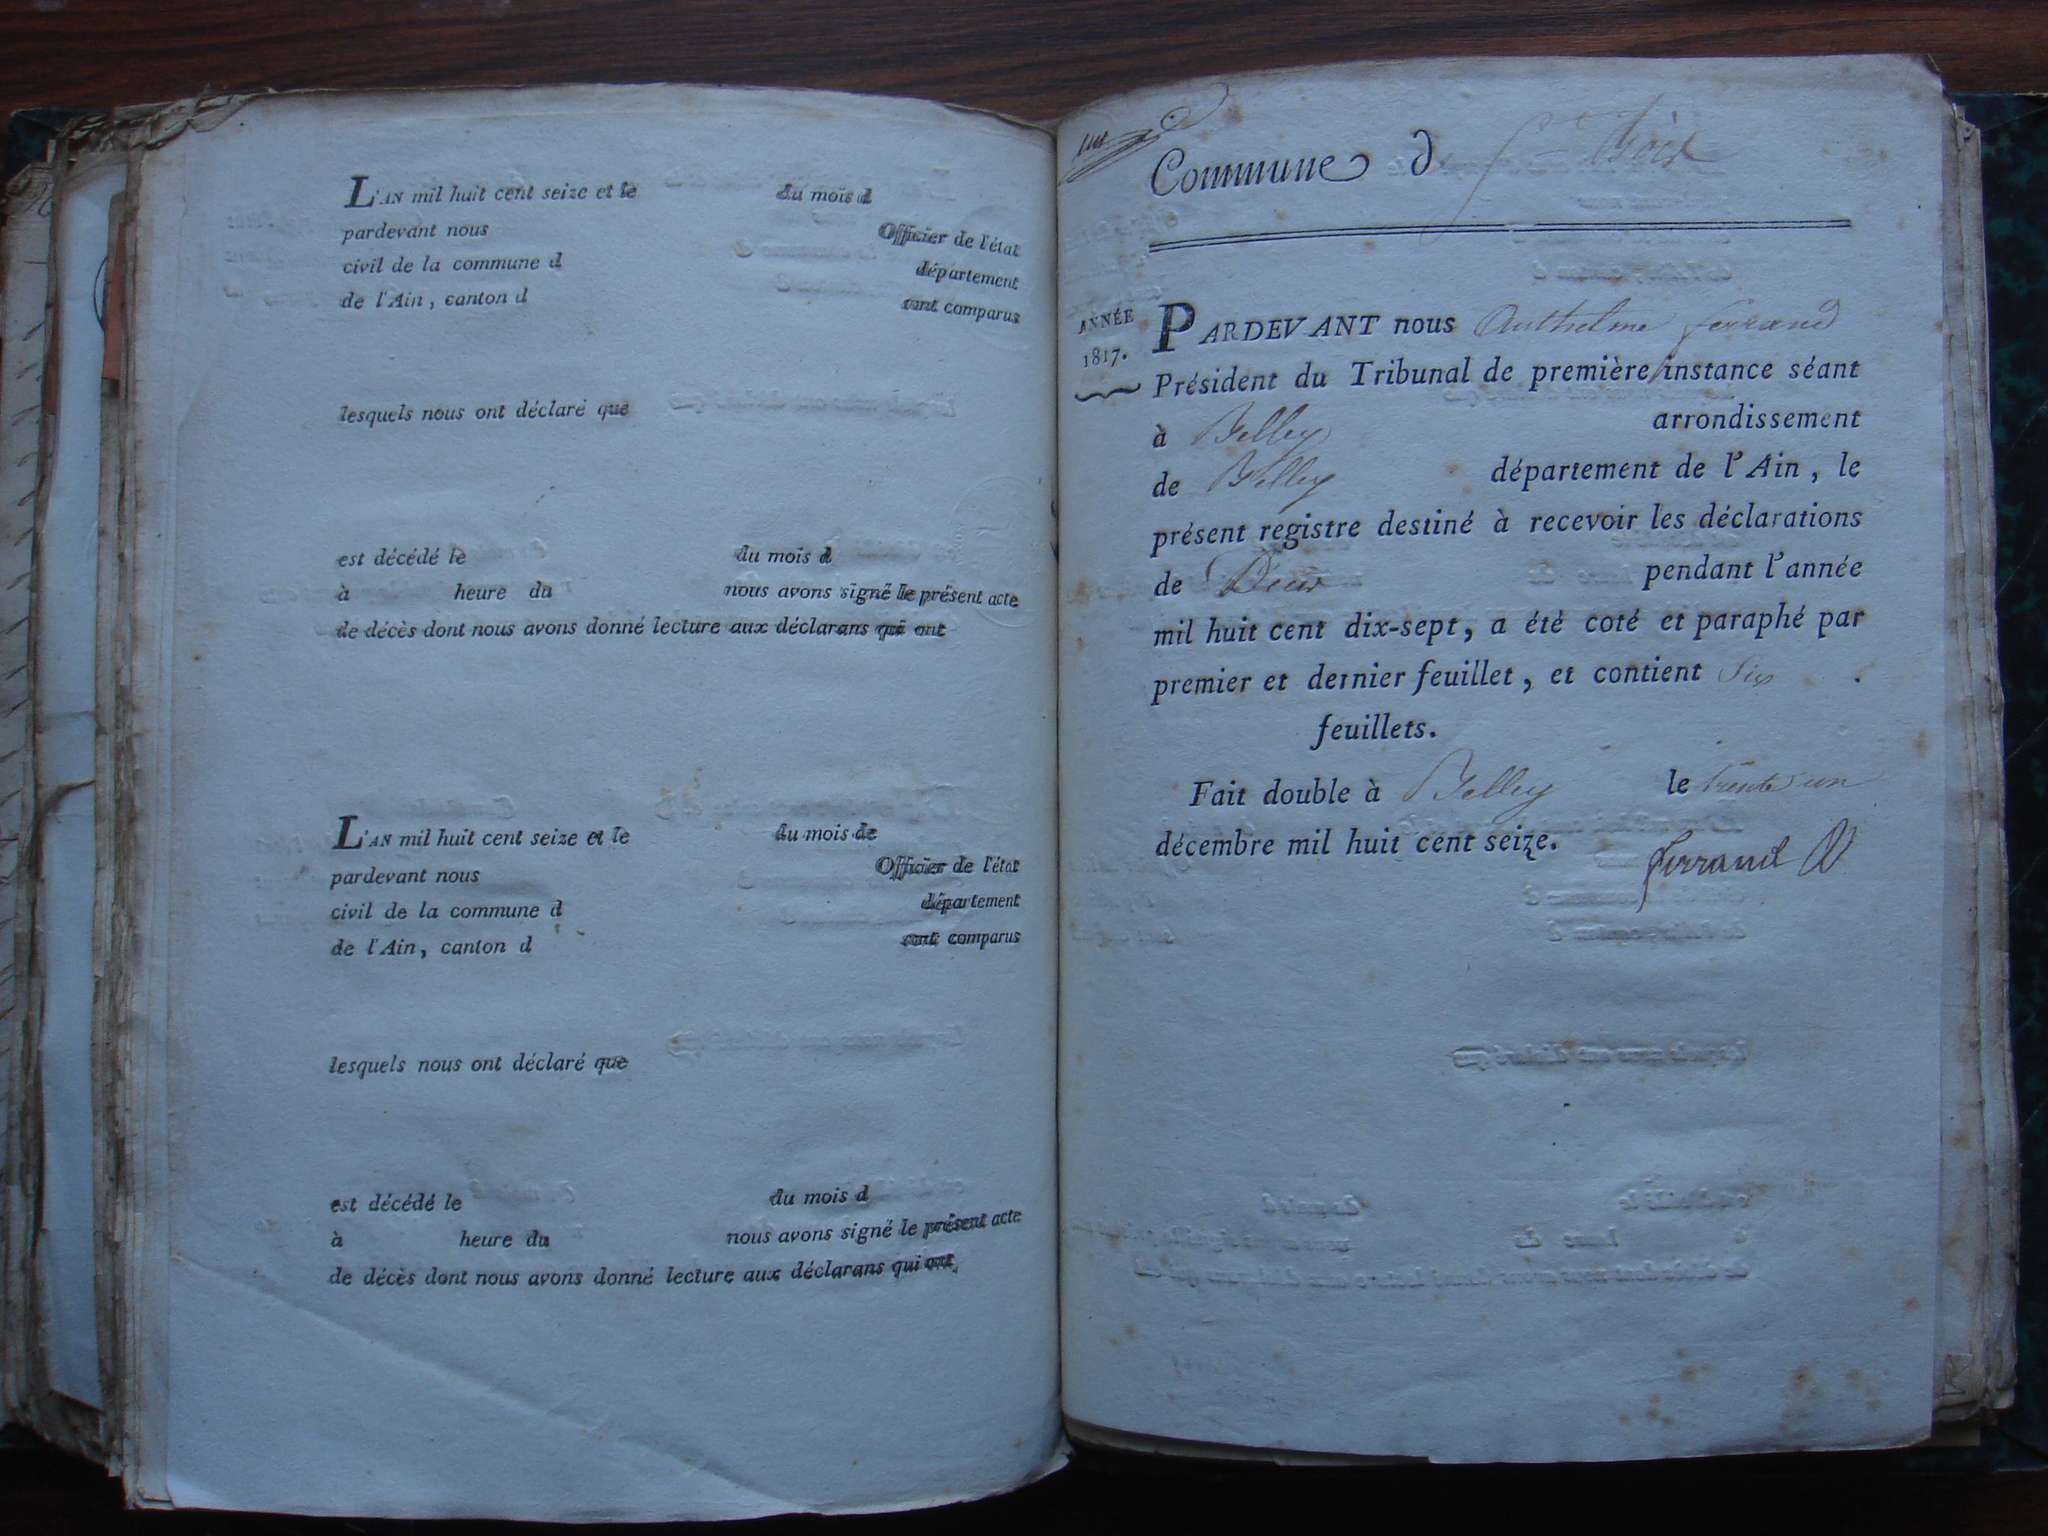 L'AN mil huit cent seize et le du mois d
pardevant nous Officier de l'état
civil de la commune d département
de l'Ain, canton d sont comparus
lesquels nous ont déclaré que
est décédé le du mois d
à heure du nous avons signé le présent acte
de décès dont nous avons donné lecture aux déclarans qui ont
L'AN mil huit cent seize et le du mois de
pardevant nous Officier de l'état
civil de la commune d département
de l'Ain, canton d sont comparus
lesquels nous ont déclaré que
est décédé le du mois d
à heure du nous avons signé le présent acte
de décès dont nous avons donné lecture aux déclarans qui ont
Commune d
ANNÉE
1817.
PARDEVANT nous Anthelme ferrand
Président du Tribunal de première instance séant
à Belley arrondissement
de Belley département de l'Ain, le
présent registre destiné à recevoir les déclarations
de pendant l'année
mil huit cent dix-sept, a été coté et paraphé par
premier et dernier feuillet, et contient Six
feuillets.
Fait double à Belley le trente un
décembre mil huit cent seize.
ferrand